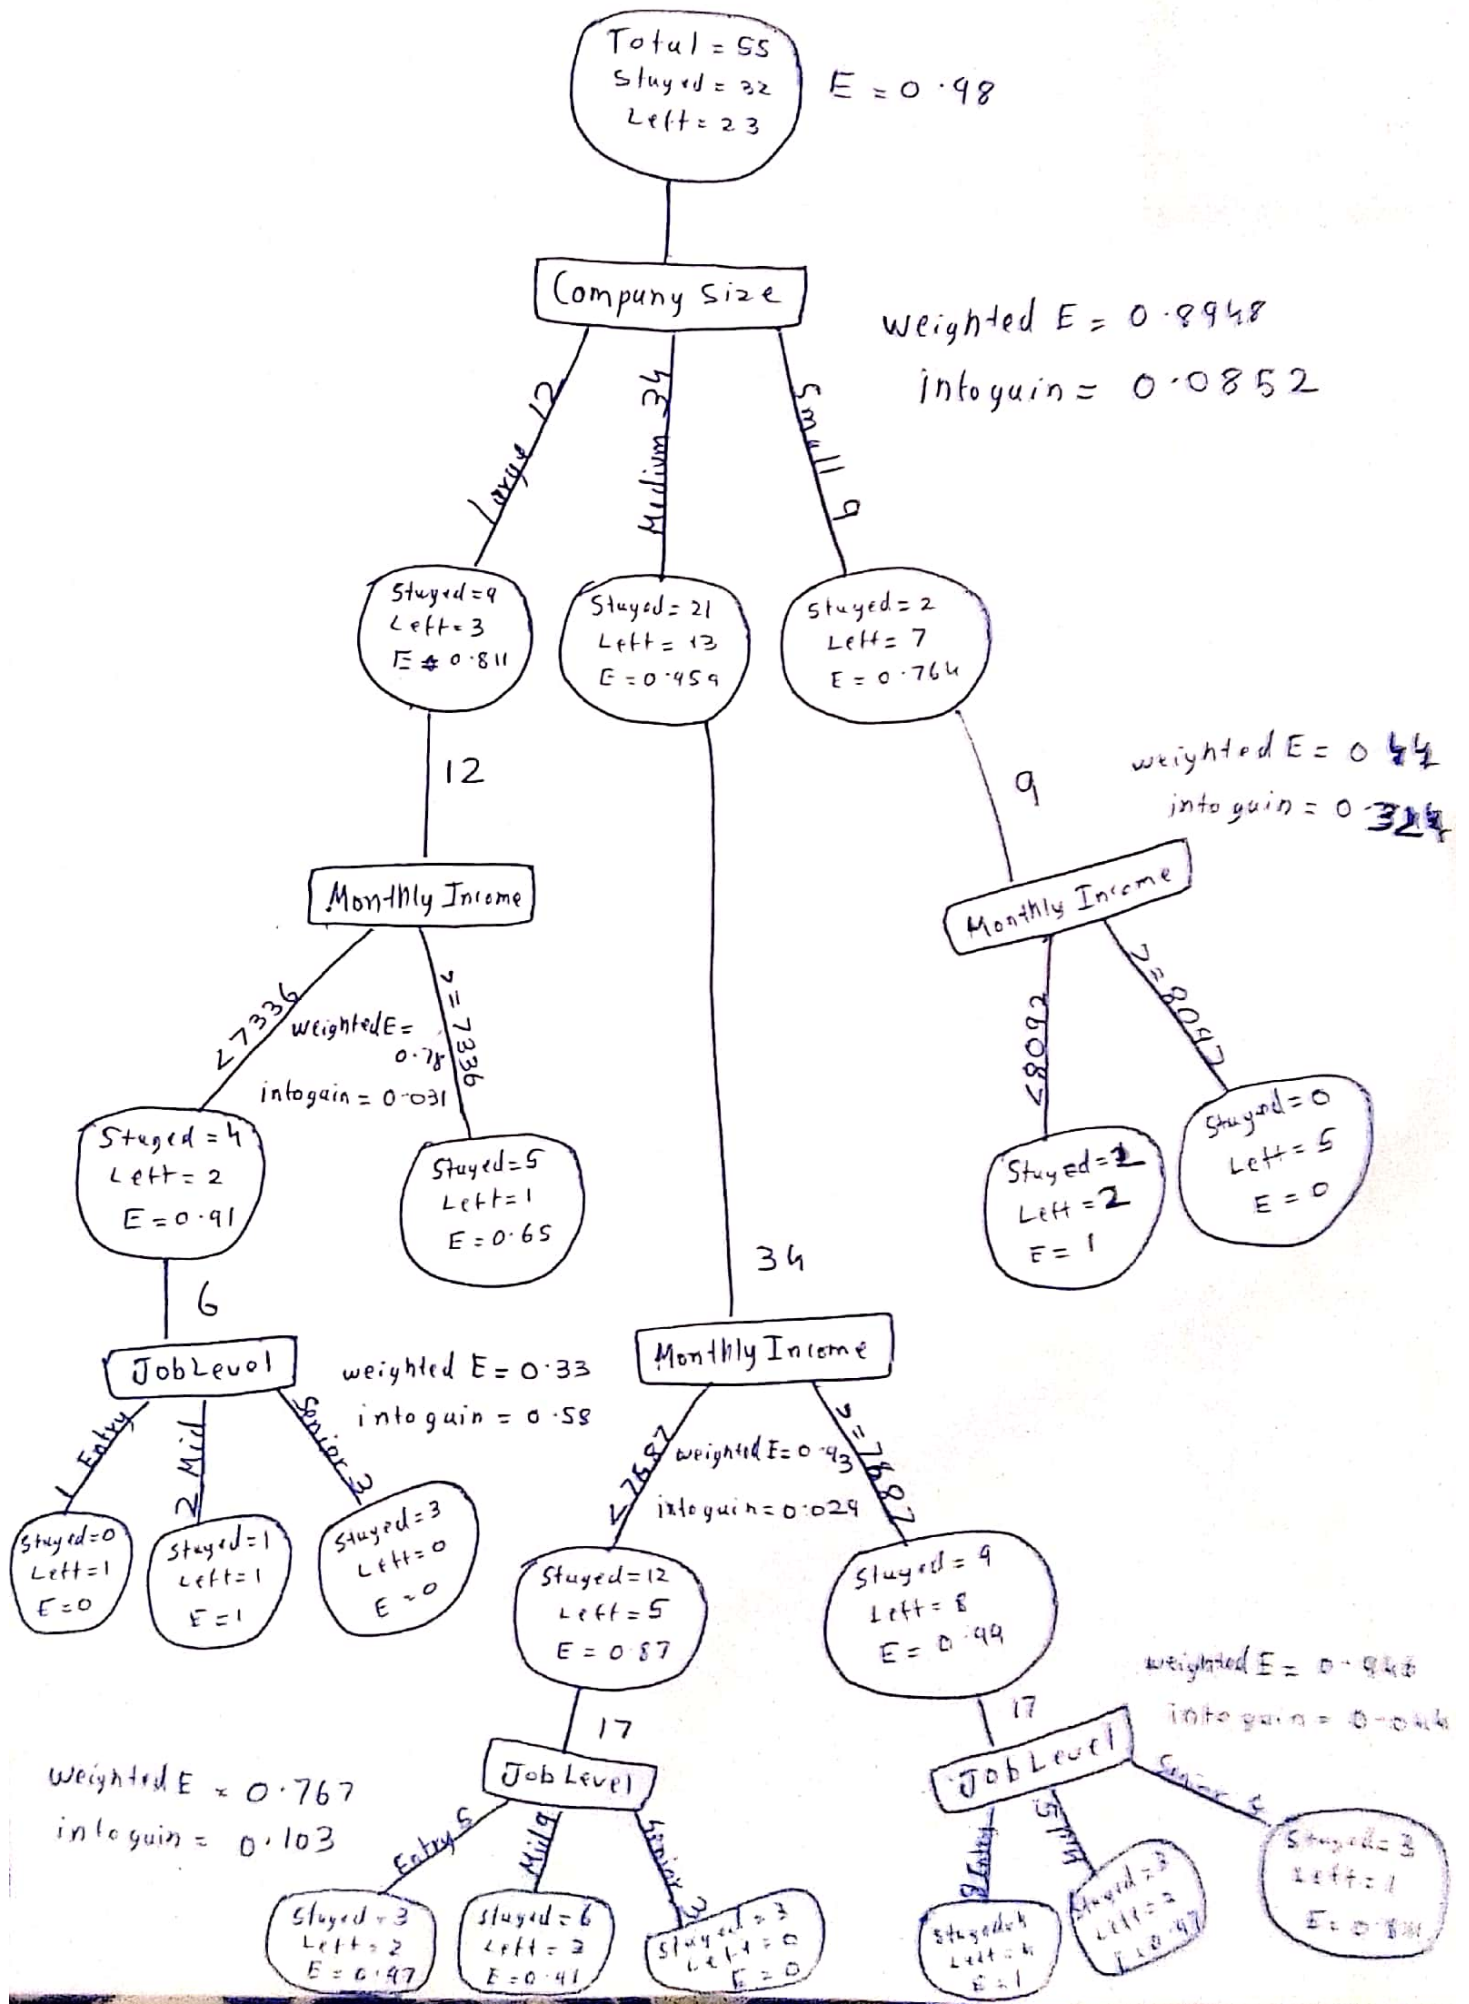 Total = 55
Stayed = 32
Left = 23
E = 0.98
Company Size
weighted E = 0.8948
infogain = 0.0852
Large 12
Medium 34
Small 9
Stayed = 9
Left = 3
E = 0.811
Stayed = 21
Left = 13
E = 0.959
Stayed = 2
Left = 7
E = 0.764
12
9
weighted E = 0.44
infogain = 0.324
Monthly Income
Monthly Income
<7336
>=7336
weighted E =
0.78
infogain = 0.031
<8092
>=8092
Stayed = 4
Left = 2
E = 0.91
Stayed = 5
Left = 1
E = 0.65
Stayed = 2
Left = 2
E = 1
Stayed = 0
Left = 5
E = 0
6
34
JobLevel
weighted E = 0.33
infogain = 0.58
Monthly Income
1 Entry
2 Mid
Senior 3
<7687
>=7687
weighted E = 0.93
infogain = 0.029
Stayed = 0
Left = 1
E = 0
Stayed = 1
Left = 1
E = 1
Stayed = 3
Left = 0
E = 0
Stayed = 12
Left = 5
E = 0.87
Stayed = 9
Left = 8
E = 0.99
17
17
weighted E =
infogain =
JobLevel
JobLevel
weighted E = 0.767
infogain = 0.103
Entry 5
Mid 9
Senior 3
8 Entry
Mid 5
Senior
Stayed = 3
Left = 2
E = 0.97
Stayed = 6
Left = 3
E = 0.91
Stayed = 3
Left = 0
E = 0
Stayed = 4
Left = 4
E = 1
Stayed = 3
Left = 2
E = 0.97
Stayed = 3
Left = 1